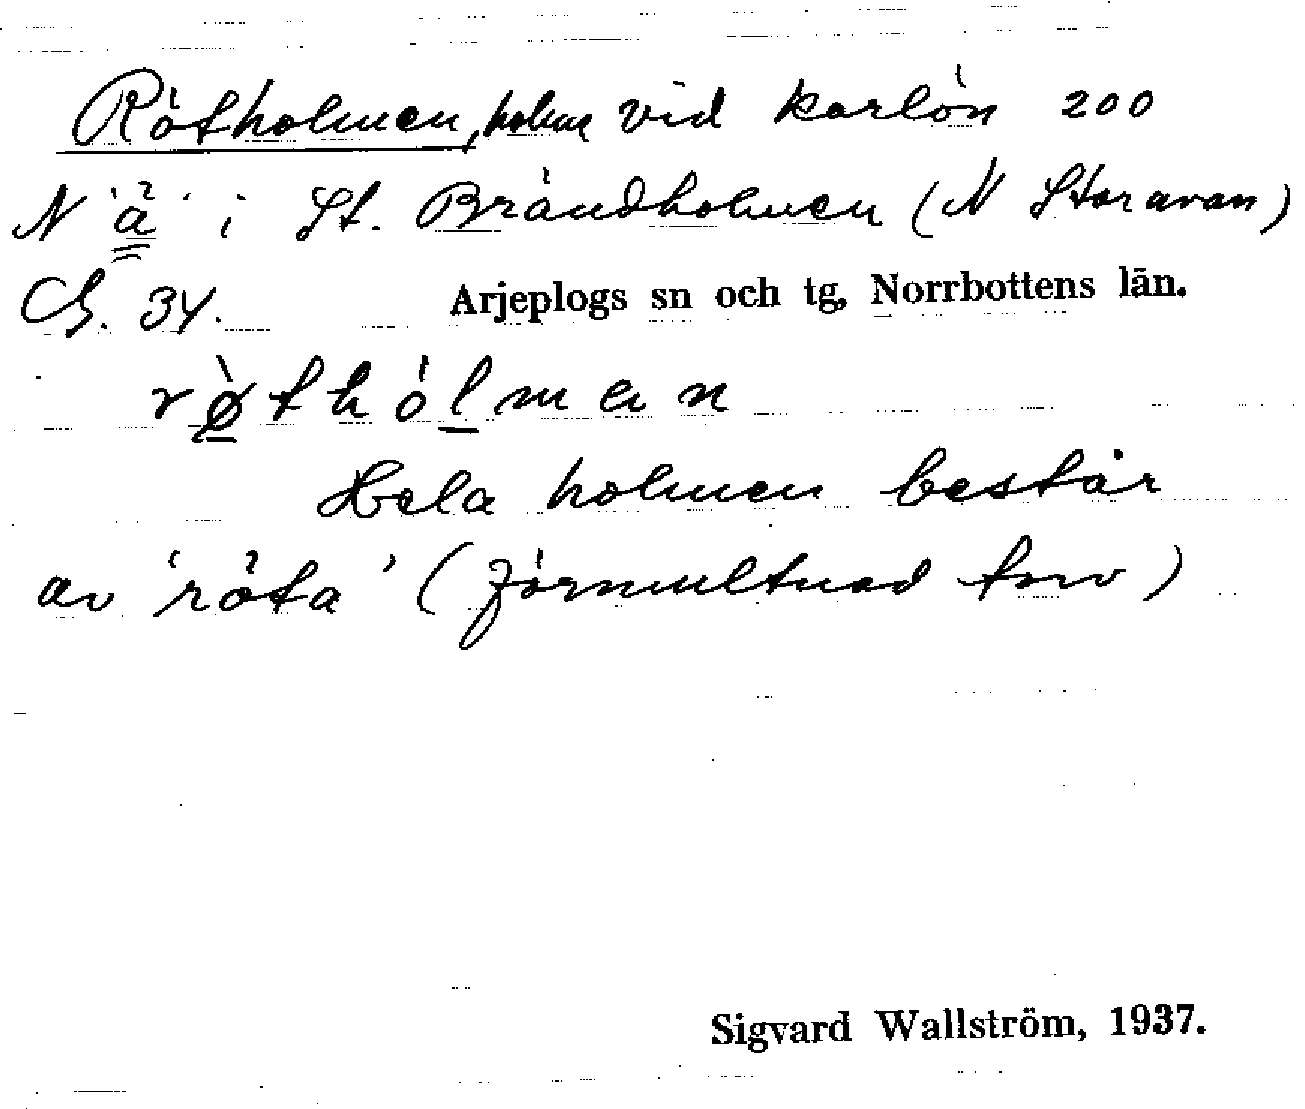 Rötholmen, holme vid karlön 200
N 'ä' i St. Brändholmen (N Storavan)
G. 34. Arjeplogs sn och tg, Norrbottens län.
rø̀thólmen
Hela holmen består
av 'röta' (förmultnad torv)
Sigvard Wallström, 1937.